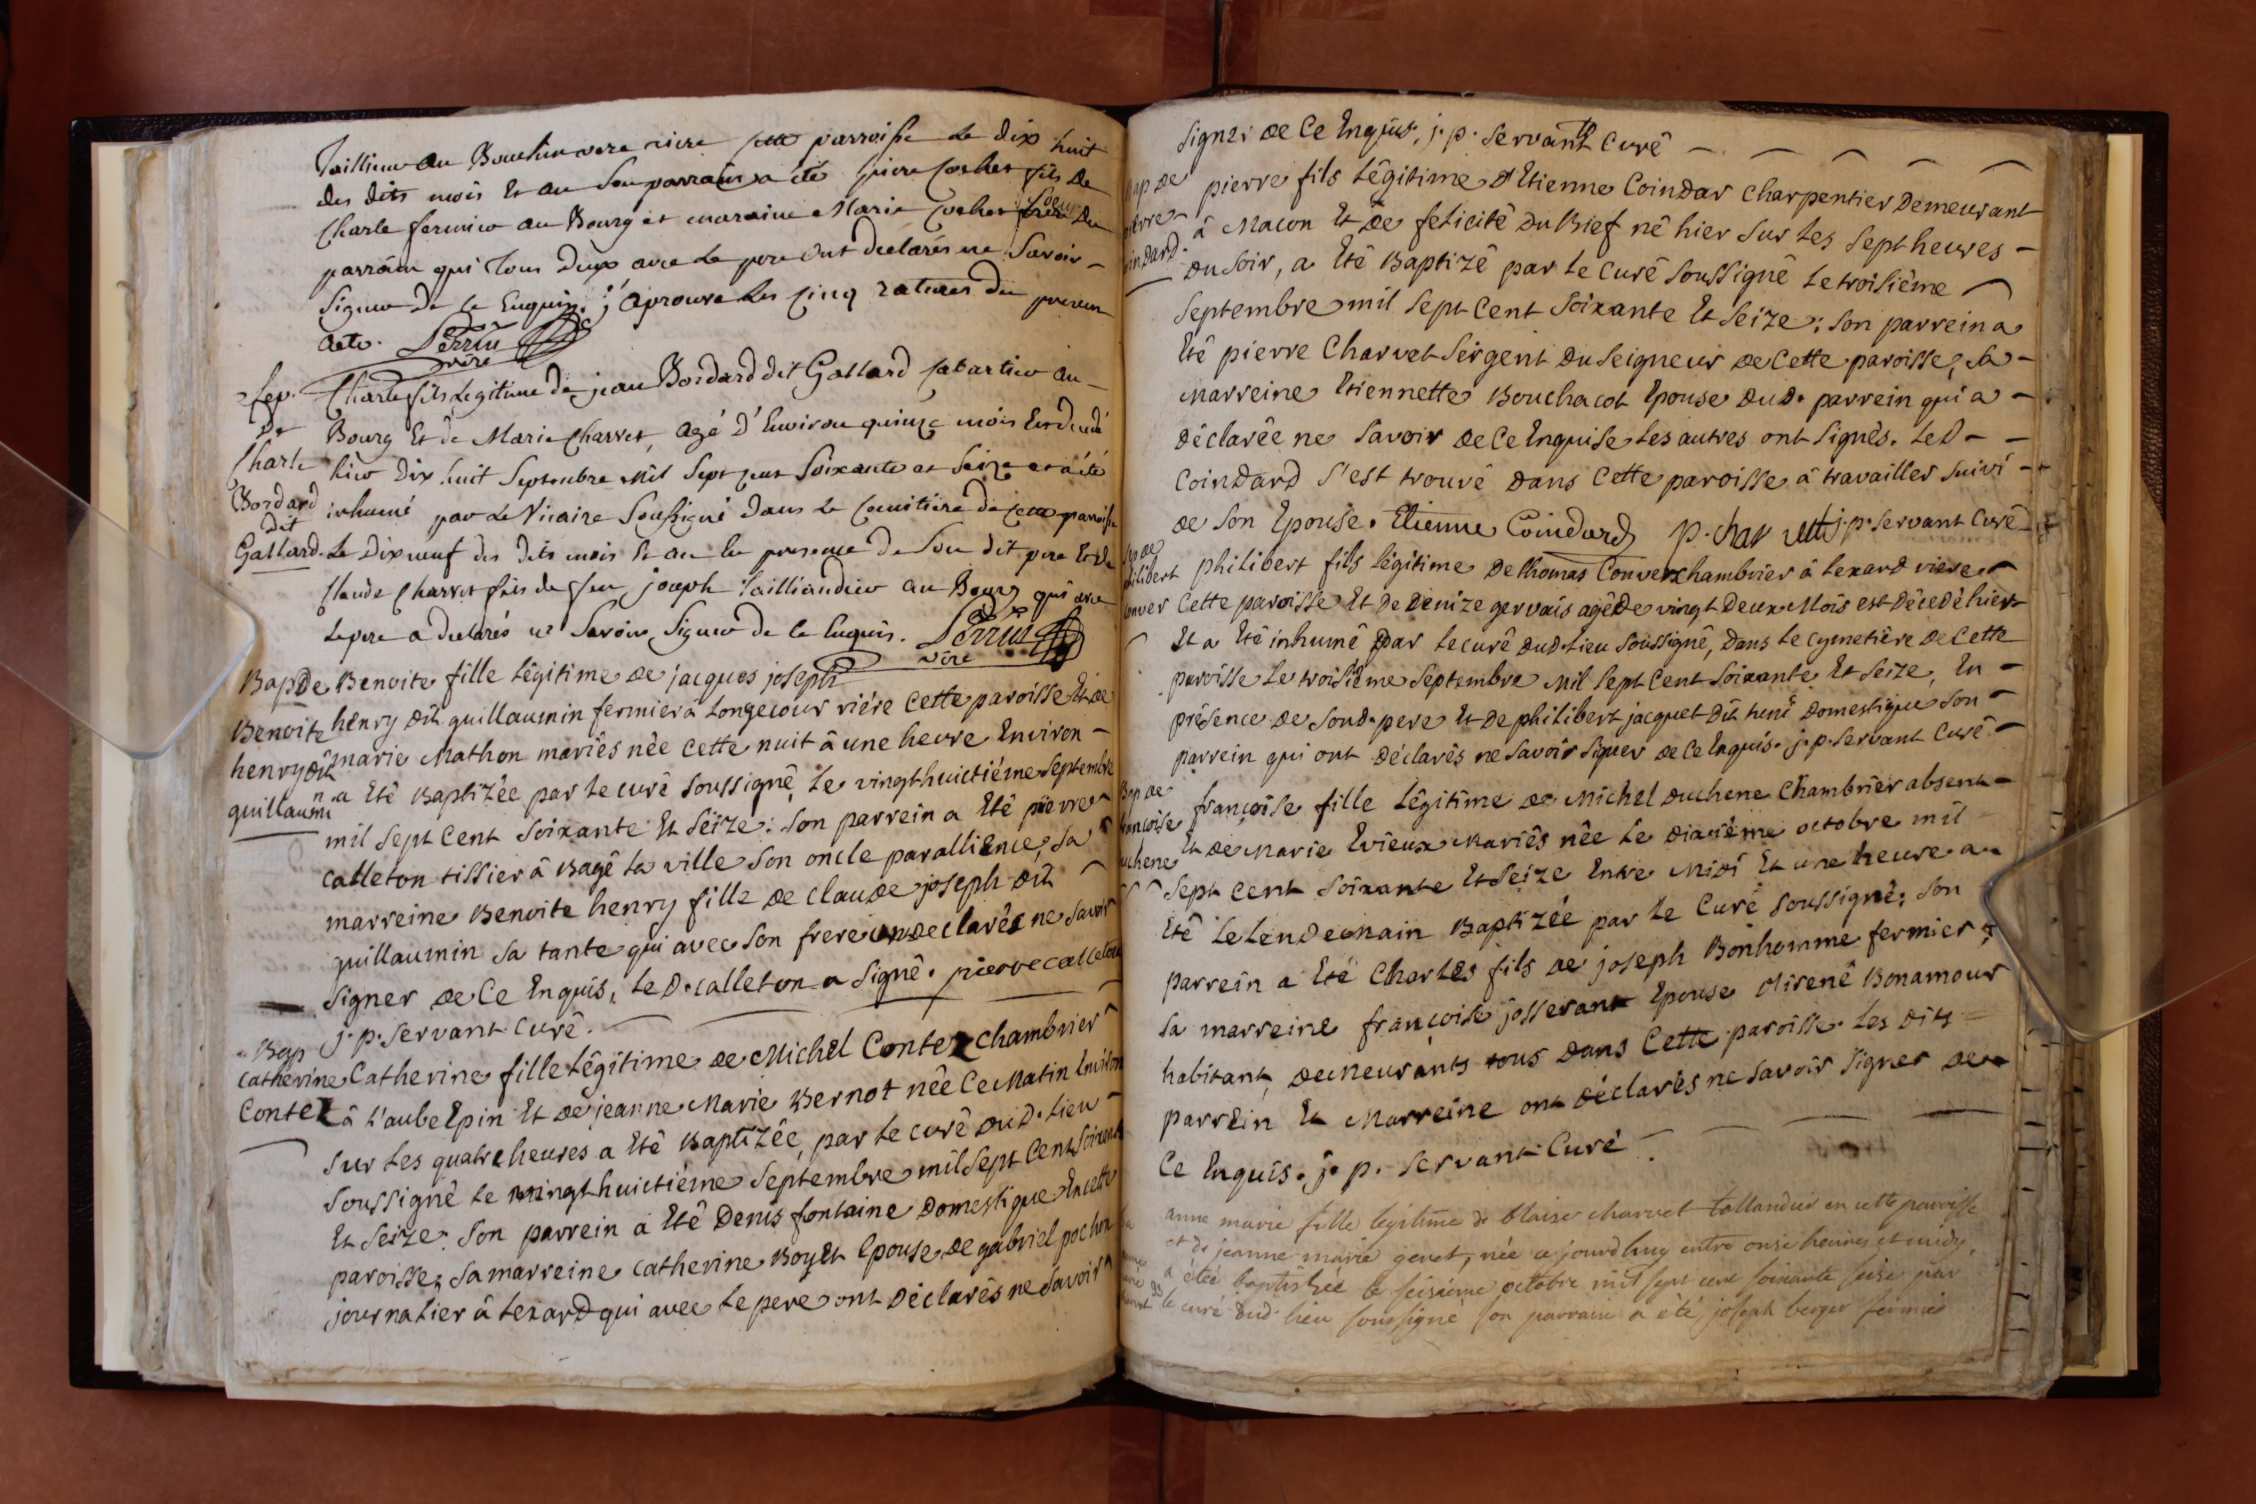 Taillieur au Bouchin vere riere cette parroisse le dix huit
des dits mois et an son parrain a été pierre cochet fils de
Charle fermier au Bourg et maraine Marie cochet soeur du
parrain qui tous deux avec le pere ont declarés ne savoir
signer de ce Enquis. j'aprouve les cinq ratures du present
acte. Perrin
vire
sep.
De
Charle
Bordard
dit
Gallard.
Charle fils Legitime de jean Bordard dit Gallard cabartier au
Bourg Et de Marie Charvet, agé d'Environ quinze mois Est decedé
hier dix huit Septembre Mil Sept cent Soixante et Seize et a été
inhumé par le Vicaire Soussigné dans le Cimitiere de cette paroisse
Le dix neuf des dits mois Et an En presence de Son dit pere Et de
Claude Charvet fils de feu joseph Tailliandier au Bourg qui avec
le pere a declarés ne Savoir Signer de ce Enquis. Perrin
vire
Bap De
Benoite
henry dit
guillaumin
Benoite fille Légitime de jacques joseph
henry dit guillaumin fermier à Longecour riére cette paroisse Et de
marie Mathon mariés née cette nuit à une heure Environ
a Eté Baptizée par le curé Soussigné, le vingthuictiéme Septembre
mil Sept Cent Soixante Et Seize: Son parrein a Eté pierre
calleton tissier à Bagé la ville Son oncle par allience, Sa
marreine Benoite henry fille de claude joseph dit
guillaumin Sa tante qui avec Son frere on declarés ne Savoir
Signer de Ce Enquis, le D. calleton a Signé. pierre calleton
j. p. Servant Curé.
Bap
catherine
Contez
Catherine fille Légitime de Michel Contez chambrier
à l'aube Epin Et de jeanne Marie Bernot née Ce Matin Environ
Sur les quatre heures a Eté Baptizée, par le curé dud. lieu
Soussigné le vingthuictiéme Septembre mil Sept Cent Soixante
Et Seize. Son parrein a Eté Denis fontaine Domestique En cette
paroisse, Sa marreine catherine Boyet Epouse de gabriel pochon
journalier à lexard qui avec le pere ont Déclarés ne Savoir
Signer de Ce Enquis, j. p. Servant Curé
Bap De
pierre
Coindard.
pierre fils Légitime d'Etienne Coindar Charpentier Demeurant
à Macon Et de felicité Du Bief né hier Sur les Sept heures
du Soir, a Eté Baptizé par le Curé Soussigné le troisième
Septembre mil Sept Cent Soixante Et Seize: Son parrein a
Eté pierre Charvet Sergent du Seigneur de Cette paroisse, Sa
Marreine Etiennette Bouchacot Epouse dud. parrein qui a
déclarée ne Savoir de Ce Enquise les autres ont Signés. le D
Coindard S'est trouvé dans Cette paroisse à travailler Suivi
de Son Epouse. Etienne Coindard P. charvet j. p. Servant Curé
Sep de
philibert
Conver
philibert fils légitime de thomas Conver chambrier à lexard riere
Cette paroisse Et de Denize gervais agé de vingt Deux Mois est décedé hier
Et a Eté inhumé par le curé dud. lieu Soussigné, dans le cymetière de Cette
paroisse le troisiéme Septembre Mil Sept Cent Soixante Et Seize, En
présence de Sond. pere Et de philibert jacquet dit tené Domestique Son
parrein qui ont déclarés ne Savoir Signer de Ce Enquis. j. p. Servant Curé
Bap de
françoise
duchene
françoise fille Légitime de Michel duchene Chambrier absent
Et de Marie Evieux Mariés née le dixiéme octobre mil
Sept Cent Soixante Et Seize Entre Midi Et une heure a
Eté le lendemain Baptizée par le Curé Soussigné: Son
parrein a Eté Charles fils de joseph Bonhomme fermier &
Sa marreine françoise josserant Epouse d'irené Bonamour
habitant, demeurants tous dans Cette paroisse. Les dits
parrein Et Marreine ont déclarés ne Savoir Signer de
Ce Enquis. j. p. Servant Curé
anne marie fille legitime de blaise charvet tallandier en cette parroisse
et de jeanne marie genet, née ce jourdhuy entre onze heures et midy,
a étée baptizée le seisiéme octobre mil sept cent soixante seise par
le curé dud. lieu soussigné son parrain a été joseph berger fermier